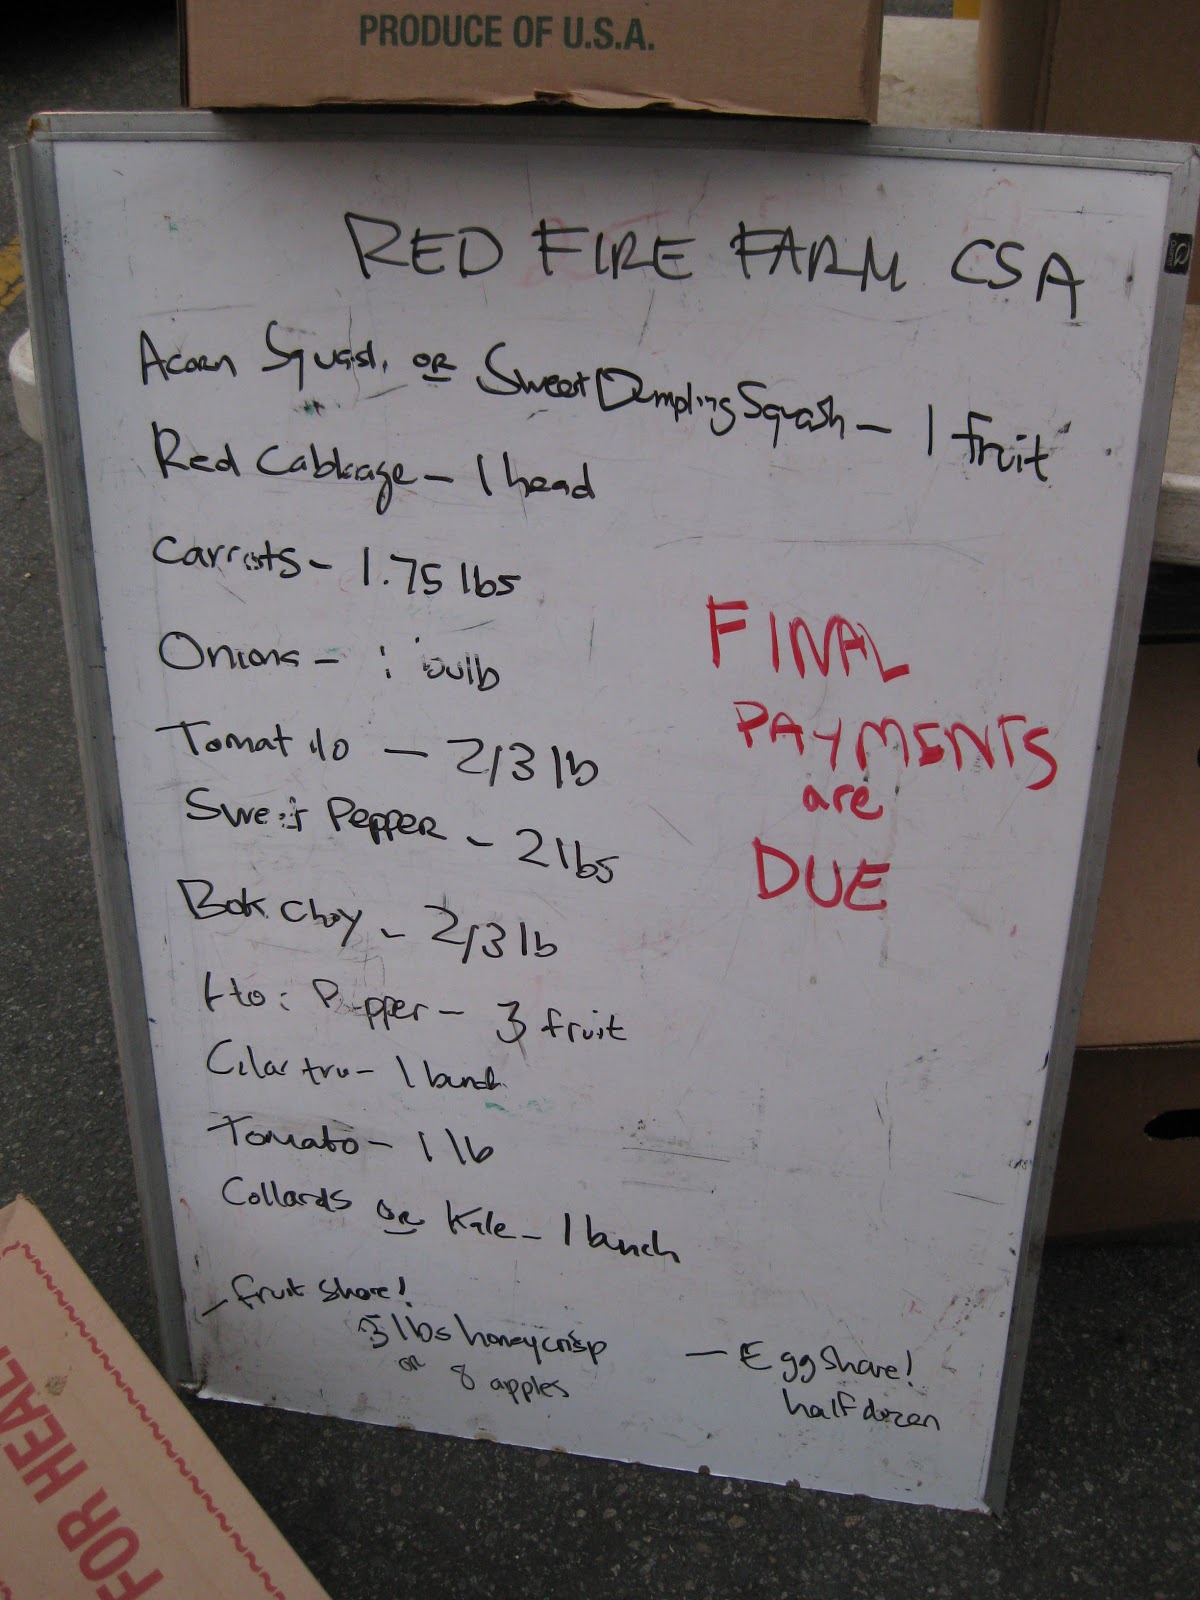 PRODUCE OF U.S.A.
RED FIRE FARM CSA
Acorn Squash OR Sweet Dumpling Squash - 1 fruit
Red Cabbage - 1 head
Carrots - 1.75 lbs
Onions - 1 bulb
Tomatillo - 2/3 lb
Sweet Pepper - 2 lbs
Bok Choy - 2/3 lb
Hot Pepper - 3 fruit
Cilantro - 1 bunch
Tomato - 1 lb
Collards OR Kale - 1 bunch
- fruit share!
3 lbs honeycrisp
or 8 apples
- Egg Share!
half dozen
FINAL
PAYMENTS
are
DUE
FOR HEAL